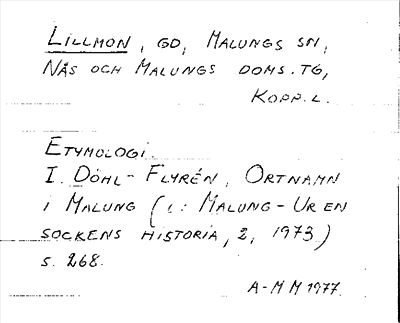 LILLMON, GD, MALUNGS SN,
NÅS OCH MALUNGS DOMS.TG,
KOPP.L.
ETYMOLOGI.
I. DÖHL-FLYRÉN, ORTNAMN
I MALUNG (I: MALUNG - UR EN
SOCKENS HISTORIA, 2, 1973)
S. 268.
A-M M 1977.